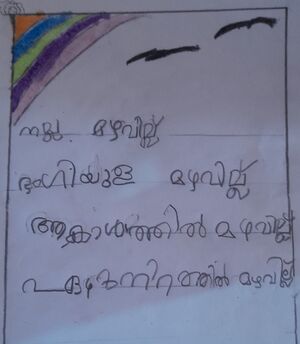 നല്ല മഴവില്ല്
ഭംഗിയുള മഴവില്ല്
ആകാശത്തിൽ മഴവില്ല്
ഏഴുനിറത്തിൽ മഴവില്ല്